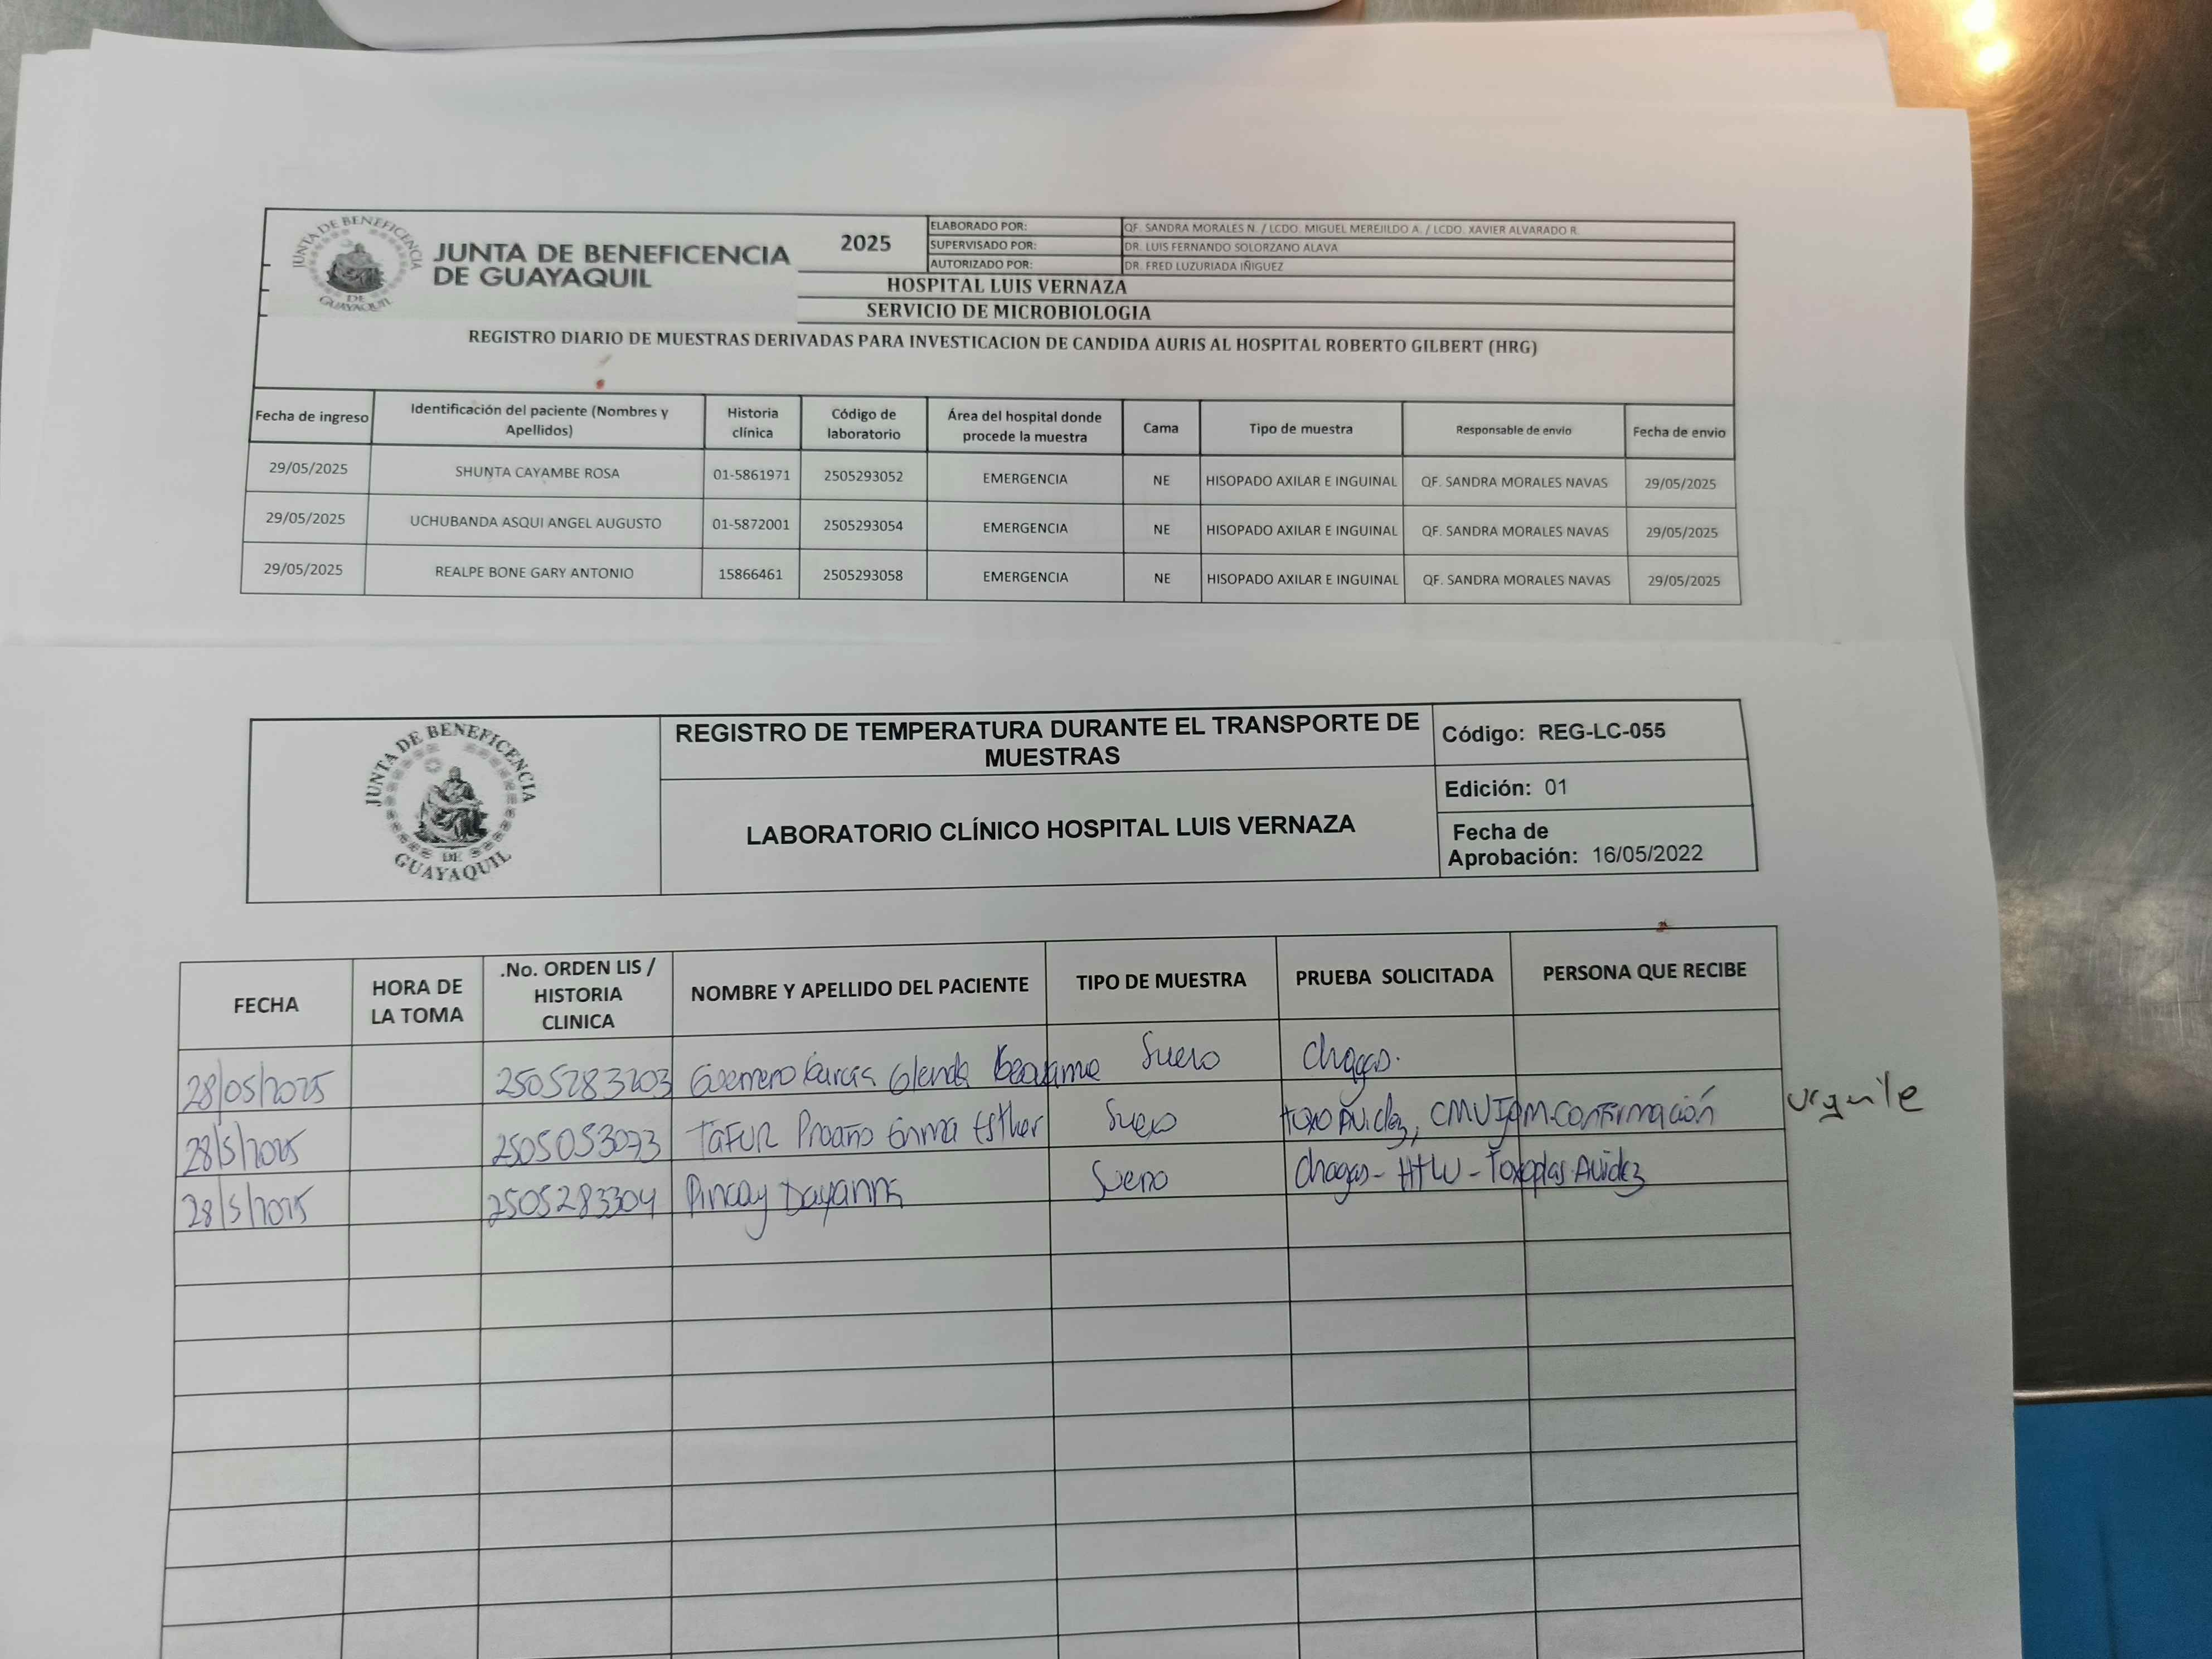 JUNTA DE BENEFICENCIA
DE GUAYAQUIL
JUNTA DE BENEFICENCIA
DE GUAYAQUIL
2025
ELABORADO POR: QF. SANDRA MORALES N. / LCDO. MIGUEL MEREJILDO A. / LCDO. XAVIER ALVARADO R.
SUPERVISADO POR: DR. LUIS FERNANDO SOLORZANO ALAVA
AUTORIZADO POR: DR. FRED LUZURIADA IÑIGUEZ
HOSPITAL LUIS VERNAZA
SERVICIO DE MICROBIOLOGIA
REGISTRO DIARIO DE MUESTRAS DERIVADAS PARA INVESTICACION DE CANDIDA AURIS AL HOSPITAL ROBERTO GILBERT (HRG)
Fecha de ingreso Identificación del paciente (Nombres y Apellidos) Historia clínica Código de laboratorio Área del hospital donde procede la muestra Cama Tipo de muestra Responsable de envio Fecha de envio
29/05/2025 SHUNTA CAYAMBE ROSA 01-5861971 2505293052 EMERGENCIA NE HISOPADO AXILAR E INGUINAL QF. SANDRA MORALES NAVAS 29/05/2025
29/05/2025 UCHUBANDA ASQUI ANGEL AUGUSTO 01-5872001 2505293054 EMERGENCIA NE HISOPADO AXILAR E INGUINAL QF. SANDRA MORALES NAVAS 29/05/2025
29/05/2025 REALPE BONE GARY ANTONIO 15866461 2505293058 EMERGENCIA NE HISOPADO AXILAR E INGUINAL QF. SANDRA MORALES NAVAS 29/05/2025
JUNTA DE BENEFICENCIA
DE GUAYAQUIL
REGISTRO DE TEMPERATURA DURANTE EL TRANSPORTE DE
MUESTRAS
LABORATORIO CLÍNICO HOSPITAL LUIS VERNAZA
Código: REG-LC-055
Edición: 01
Fecha de
Aprobación: 16/05/2022
FECHA HORA DE LA TOMA .No. ORDEN LIS / HISTORIA CLINICA NOMBRE Y APELLIDO DEL PACIENTE TIPO DE MUESTRA PRUEBA SOLICITADA PERSONA QUE RECIBE
28/05/2025 2505283203 Guerrero García Glenda Suero Chagas.
28/5/2025 2505053073 TAFUR Proaño Emma Esther Suero toxo Avidez, CMV IgM-confirmación
28/5/2025 2505283304 Pincay Dayanna Suero Chagas - - Toxoplas Avidez